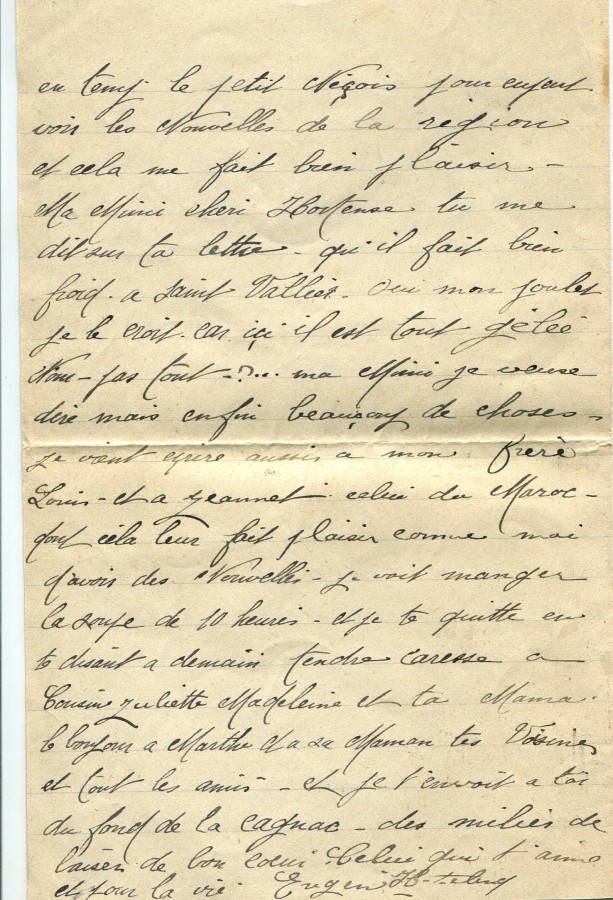 en temp le petit Niçois pour
voir les Nouvelles de la région
et cela me fait bien plaisir -
Ma Mimi cheri Hortense tu me
dit sur ta lettre - qu'il fait bien
froid - a Saint Vallier - Oui mon poulet
je le croit car içi il est tout gélée
Non - pas tout - ?... ma Mimi je veuse
dire mais enfin beauçoup de choses -
je vient ecrire aussi a mon frère
Louis - et a Jeannet - celui du Maroc -
dont cela leur fait plaisir comme moi
d'avoir des Nouvelles - je vait manger
la soupe de 10 heures - et je te quitte en
te disant a demain tendre caresse a
Cousine Juliette Madeleine et ta Mama.
le bonjour a Marthe et a sa Maman tes Voisines
et tout les amis - et je t'envoit a toi
du fond de la cagnac - des miliés de
baiser de bon coeur. Celui qui t'aime
et pour la vie. Eugène